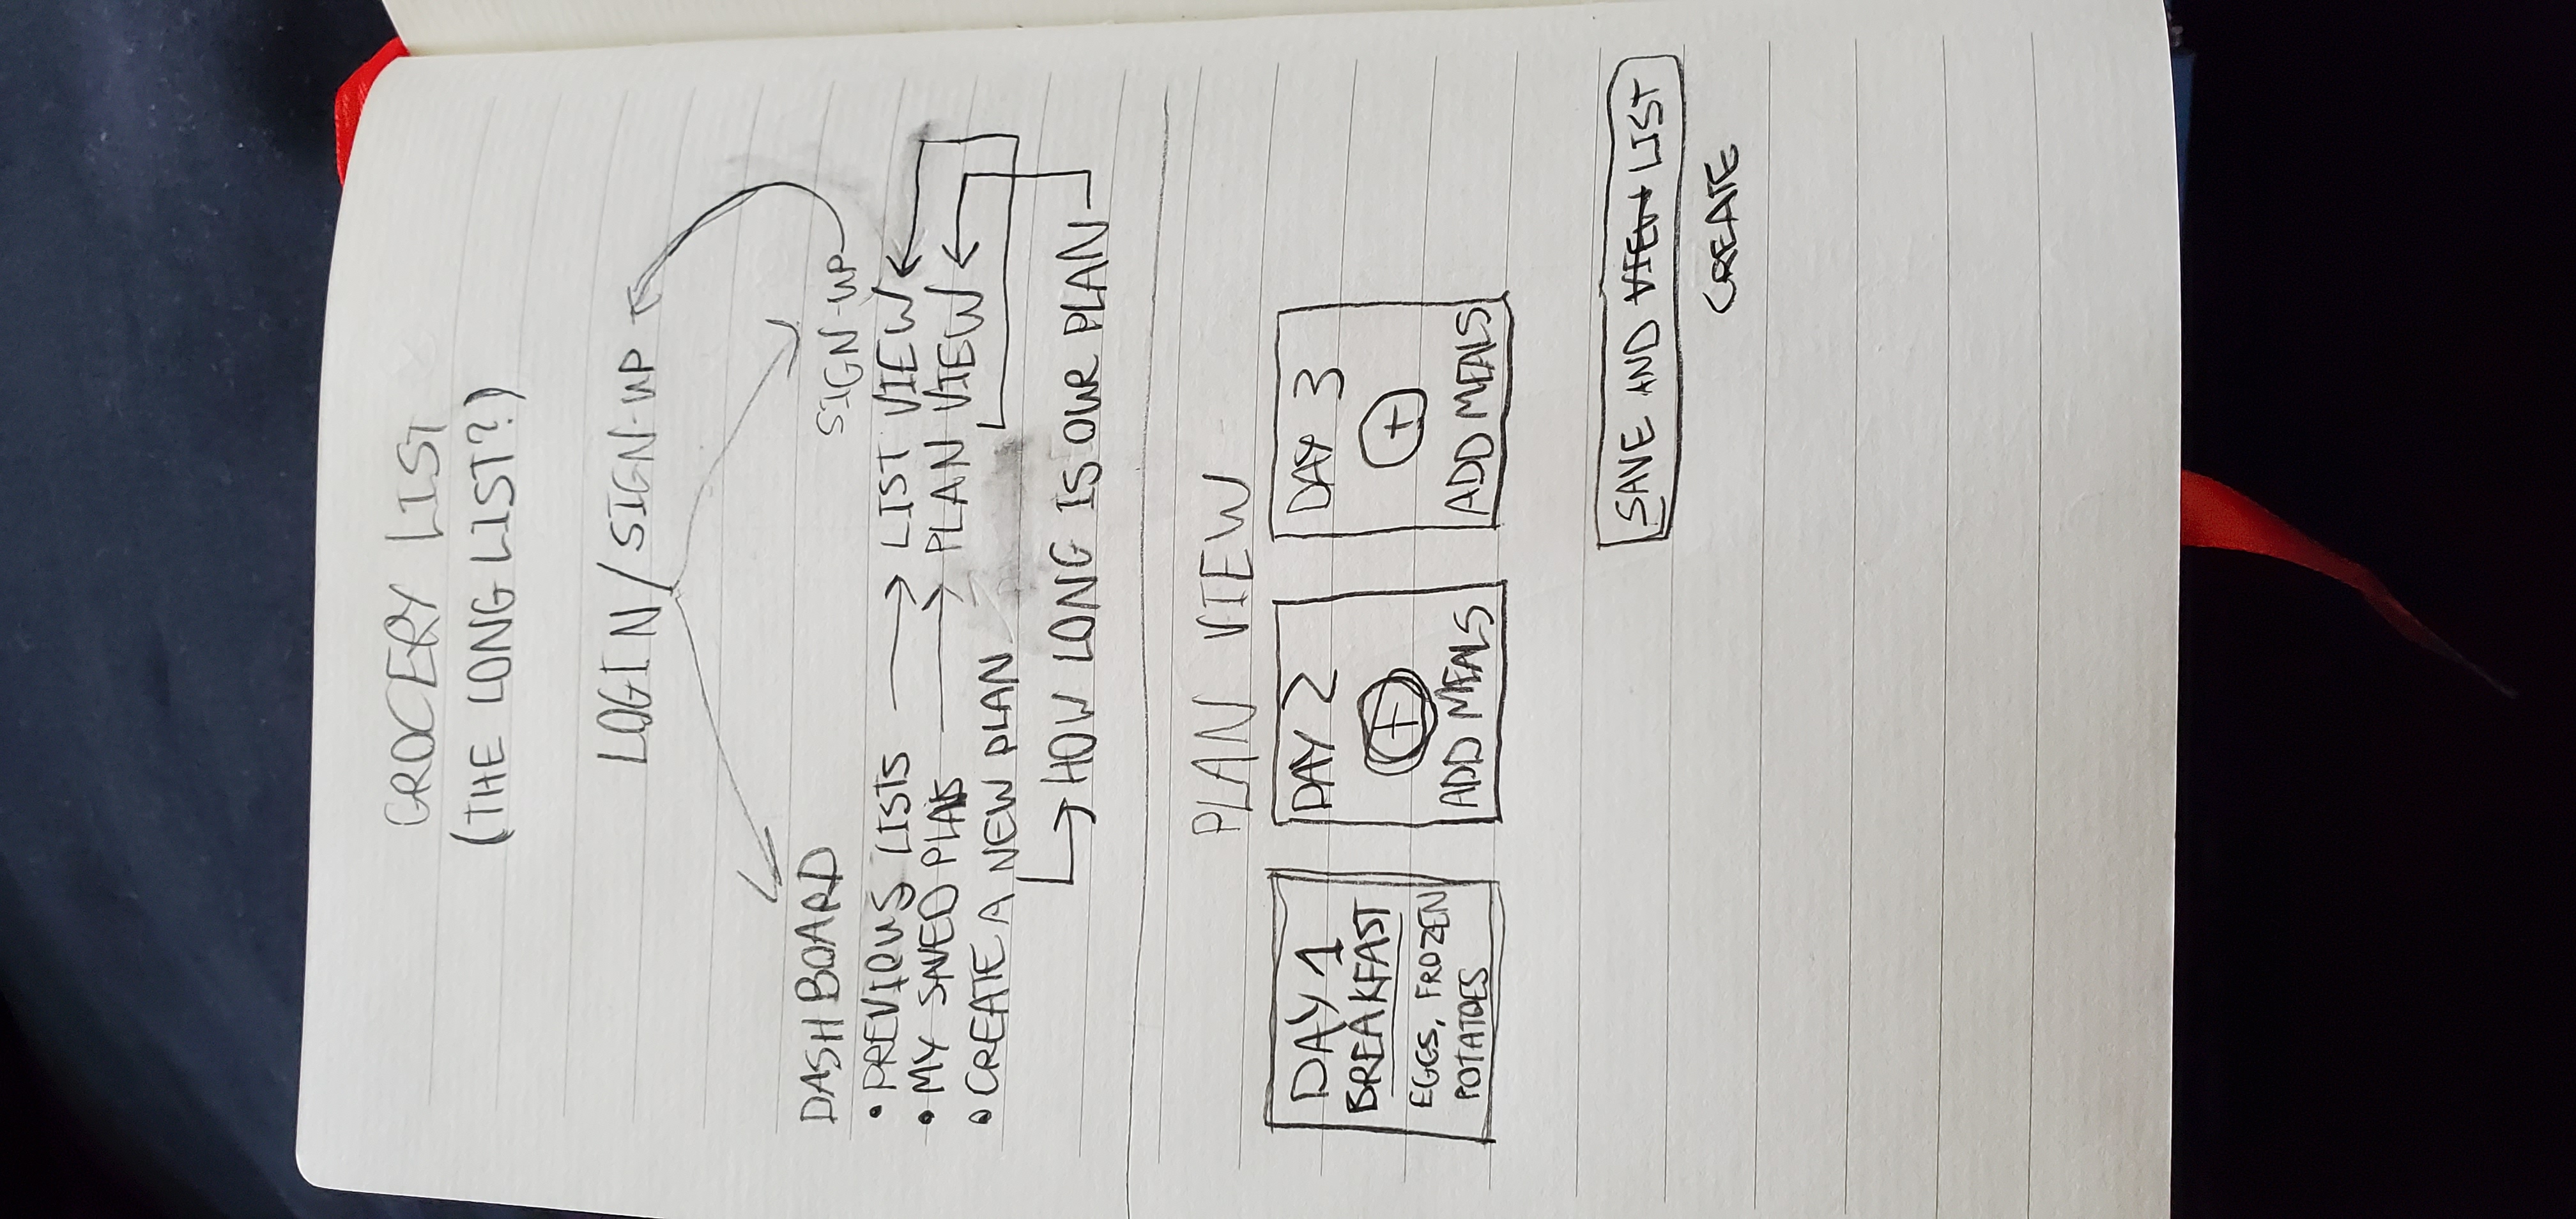 GROCERY LIST
(THE LONG LIST?)
LOGIN / SIGN-UP
DASHBOARD
SIGN-UP
• PREVIOUS LISTS → LIST VIEW
• MY SAVED PLANS → PLAN VIEW
• CREATE A NEW PLAN
HOW LONG IS OUR PLAN
PLAN VIEW
DAY 1
BREAKFAST
EGGS, FROZEN
POTATOES
DAY 2
+
ADD MEALS
DAY 3
+
ADD MEALS
SAVE AND VIEW LIST
CREATE